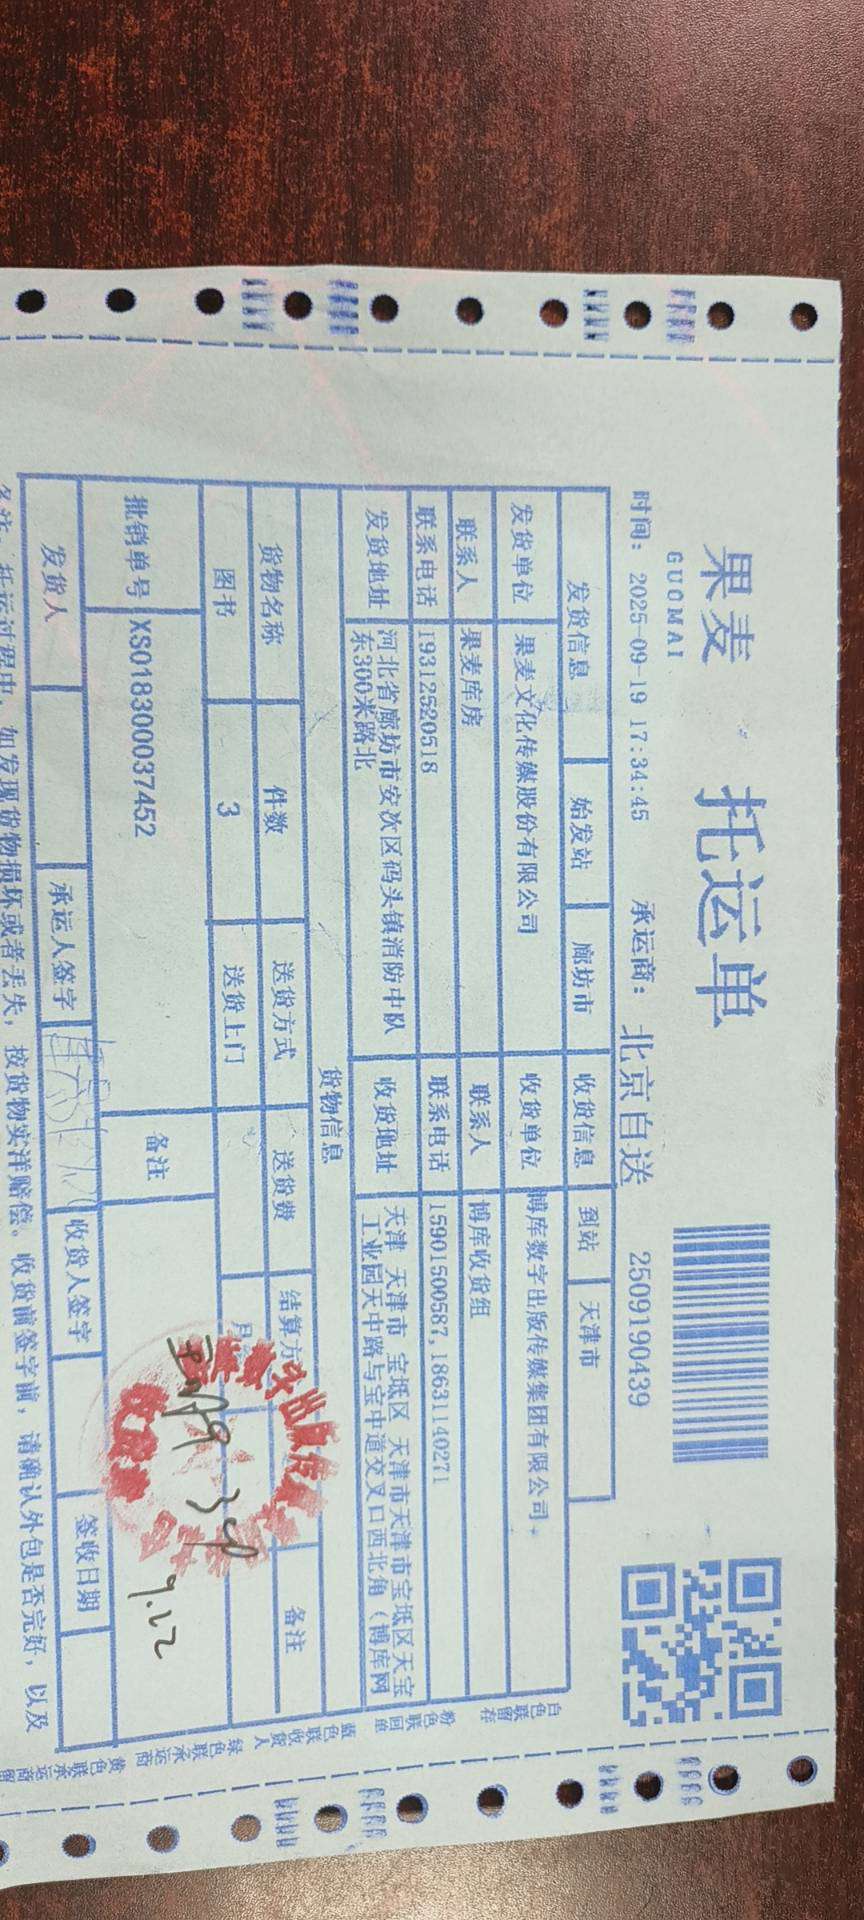 果麦 托运单
GUOMAI
时间: 2025-09-19 17:34:45 承运商: 北京自送 2509190439
发货信息 始发站 廊坊市 收货信息 到站 天津市
发货单位 果麦文化传媒股份有限公司 收货单位 博库数字出版传媒集团有限公司
联系人 果麦库房 联系人 博库收货组
联系电话 19312520518 联系电话 15901500587,18631140271
发货地址 河北省廊坊市安次区码头镇消防中队
东300米路北
收货地址 天津 天津市 宝坻区 天津市天津市宝坻区天宝
工业园天中路与宝中道交叉口西北角（博库网
货物信息
货物名称 件数 送货方式 送货费 结算方 备注
图书 3 送货上门 月
批销单号 XS018300037452 备注
3cp
9.22
发货人 承运人签字 收货人签字 签收日期
备注: 托运过程中, 如发现货物损坏或者丢失, 按货物实洋赔偿。收货前签字前, 请确认外包是否完好, 以及
白色联留存
粉色联回单
蓝色联收货人
绿色联承运商
黄色联承运商留